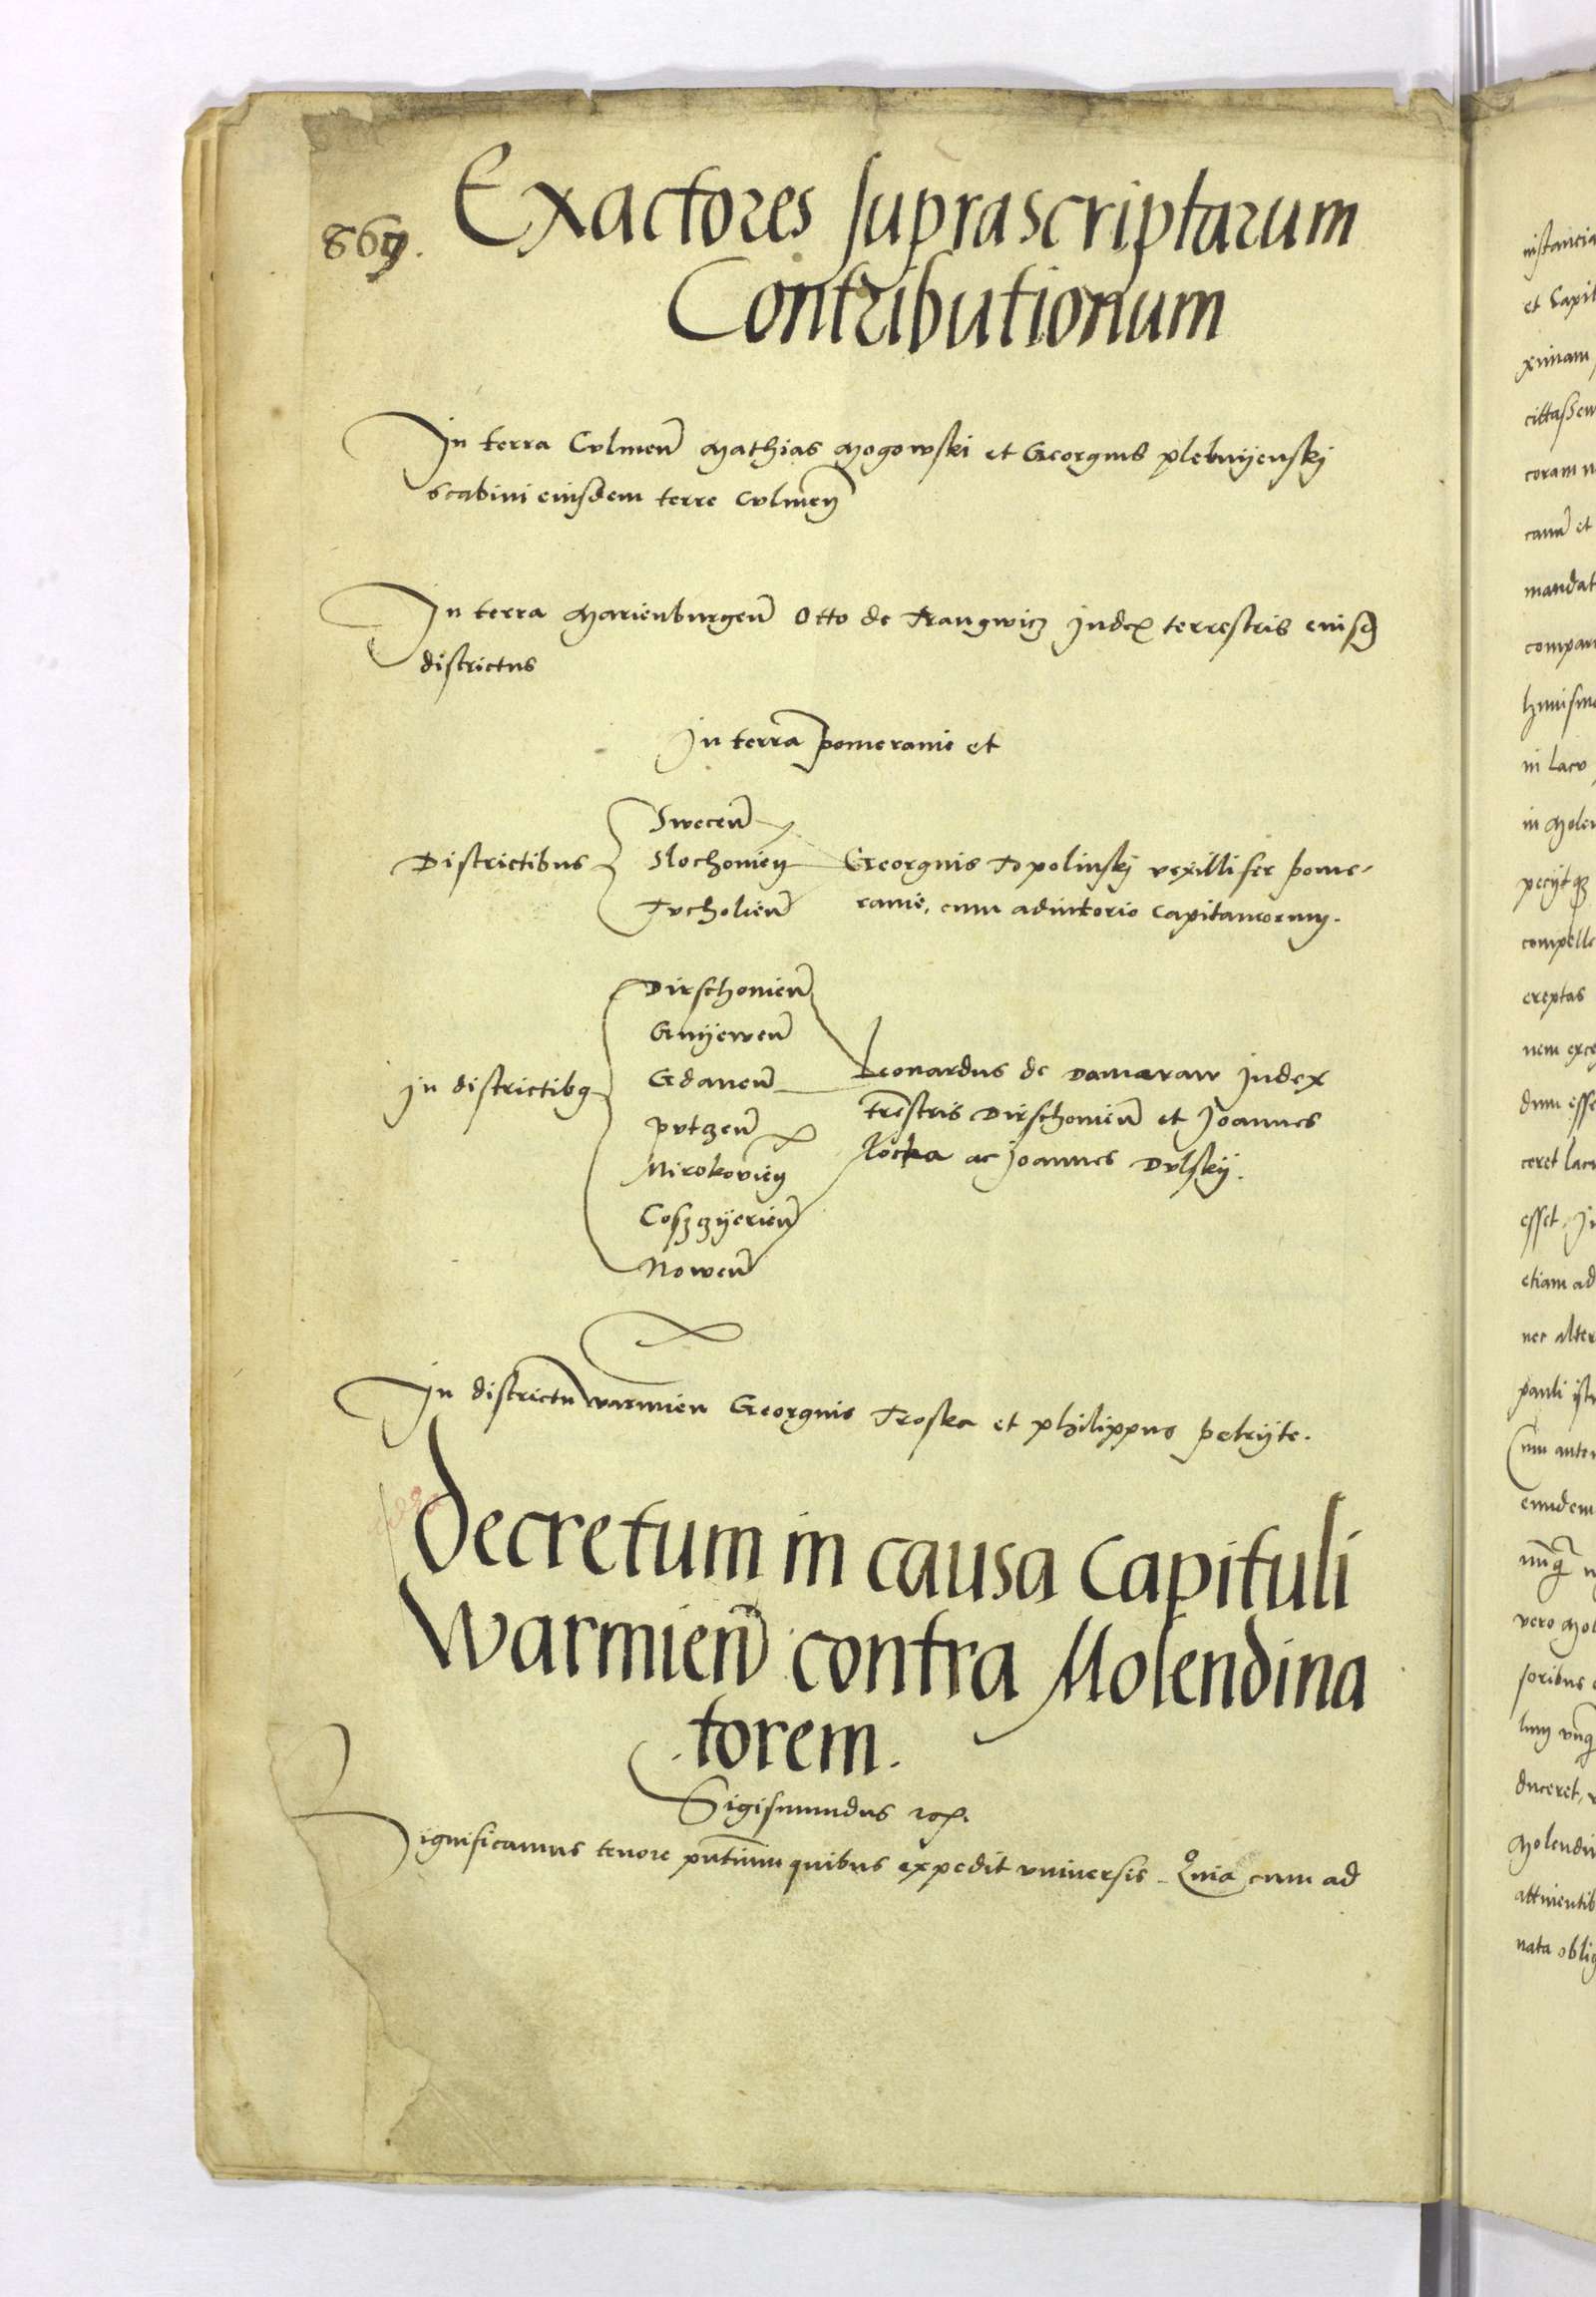 869.
Exactores suprascriptarum
Contributionum
In terra Culmen Mathias Mogowski et Georgius plebnÿenskÿ
scabini eiusdem terre Culmen
In terra Marienburgen Otto de Trangwicz Judex terrestris eiusd
districtus
In terra pomeranie et
Districtibus
Swecen
Slochovien
Tucholien
Georgius Topolinskÿ vexillifer pome-
ranie, cum adiutorio Capitaneorum.
In districtibus
Dirschovien
Gnÿewen
Gdanen
Putzen
Mirokovien
Coszczÿerien
Nowen
Leonardus de Damaraw Judex
trestris Dirschovien et Joannes
Rocka ac Joannes Dulskÿ.
In districtu warmien Georgius Troska et philippus petrÿte.
Decretum in causa Capituli
Warmien contra Molendina
torem.
Sigismundus rex.
Significamus tenore pntium quibus expedit universis. Quia cum ad
et Capit
ximam
coram
et
mandat
compar
in lacu
in Molen
compelle
ereptas
nem exce
dum esse
ceret lacu
esset. In
etiam ad
nec alter
pauli
Cum autem
eiusdem
vero Mol
duceret,
Molendi
attinentib
nata oblig